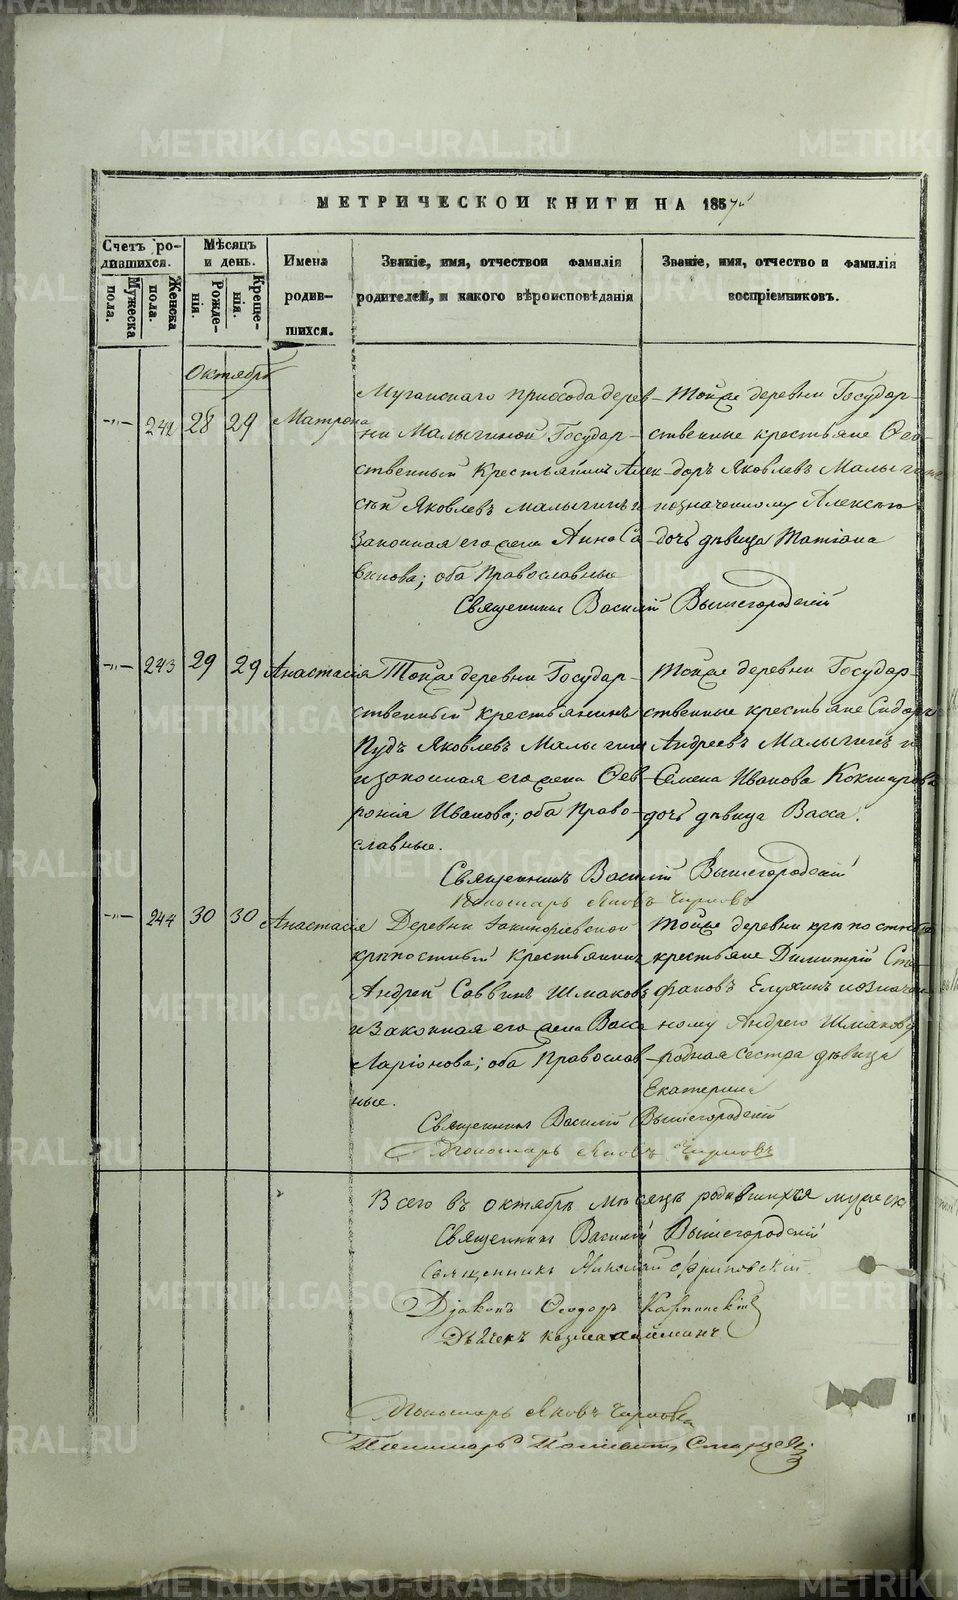 METRIKI.GASO-URAL.RU
МЕТРИЧЕСКОЙ КНИГИ НА 1857й
Счетъ родившихся.
Мужеска пола.
Женска пола.
Мѣсяцъ и день.
Рожденія.
Крещенія.
Имена родившихся.
Званіе, имя, отчество и фамилія
родителей, и какого вѣроисповѣданія
Званіе, имя, отчество и фамилія
воспріемниковъ.
Октябрь
242 28 29 Матрона
прихода дерев-
ни Малыгиной Государ-
ственный Крестьянинъ Алек-
сѣй Яковлевъ Малыгинъ и
Законная его жена Анна Са
винова; оба Православные
Тойже деревни Государ-
ственные крестьяне Ѳео-
доръ Яковлевъ Малыгинъ
и означенному Алексѣю
дочь дѣвица Татіана
Священникъ Василій Вышегородскій
243 29 29 Анастасія
Тойже деревни Государ-
ственный крестьянинъ
Пудъ Яковлевъ Малыгинъ
и законная его жена Фев-
ронія Иванова; оба Право-
славные.
Тойже деревни Государ-
ственные крестьяне Сидоръ
Андреевъ Малыгинъ и
Семена Иванова Кокшарова
дочь дѣвица Васса.
Священникъ Василій Вышегородскій
Пономарь Яковъ
244 30 30 Анастасія
Деревни
крѣпостный Крестьянинъ
Андрей Саввинъ Шмаковъ
и Законная его жена Васса
Ларіонова; оба Православ-
ные.
Тойже деревни крѣпостные
крестьяне Димитрій Сте
фановъ Елухинъ и означен
ному Андрею Шмакову
родная сестра дѣвица
Екатерина
Священникъ Василій Вышегородскій
Пономарь Яковъ
Всего въ октябрѣ мѣсяцѣ родившихся мужеск
Священникъ Василій Вышегородскій
Священникъ Николай
Діаконъ Ѳеодоръ Карпинскій
Дьячекъ Козма
Пономарь Яковъ
Пономарь